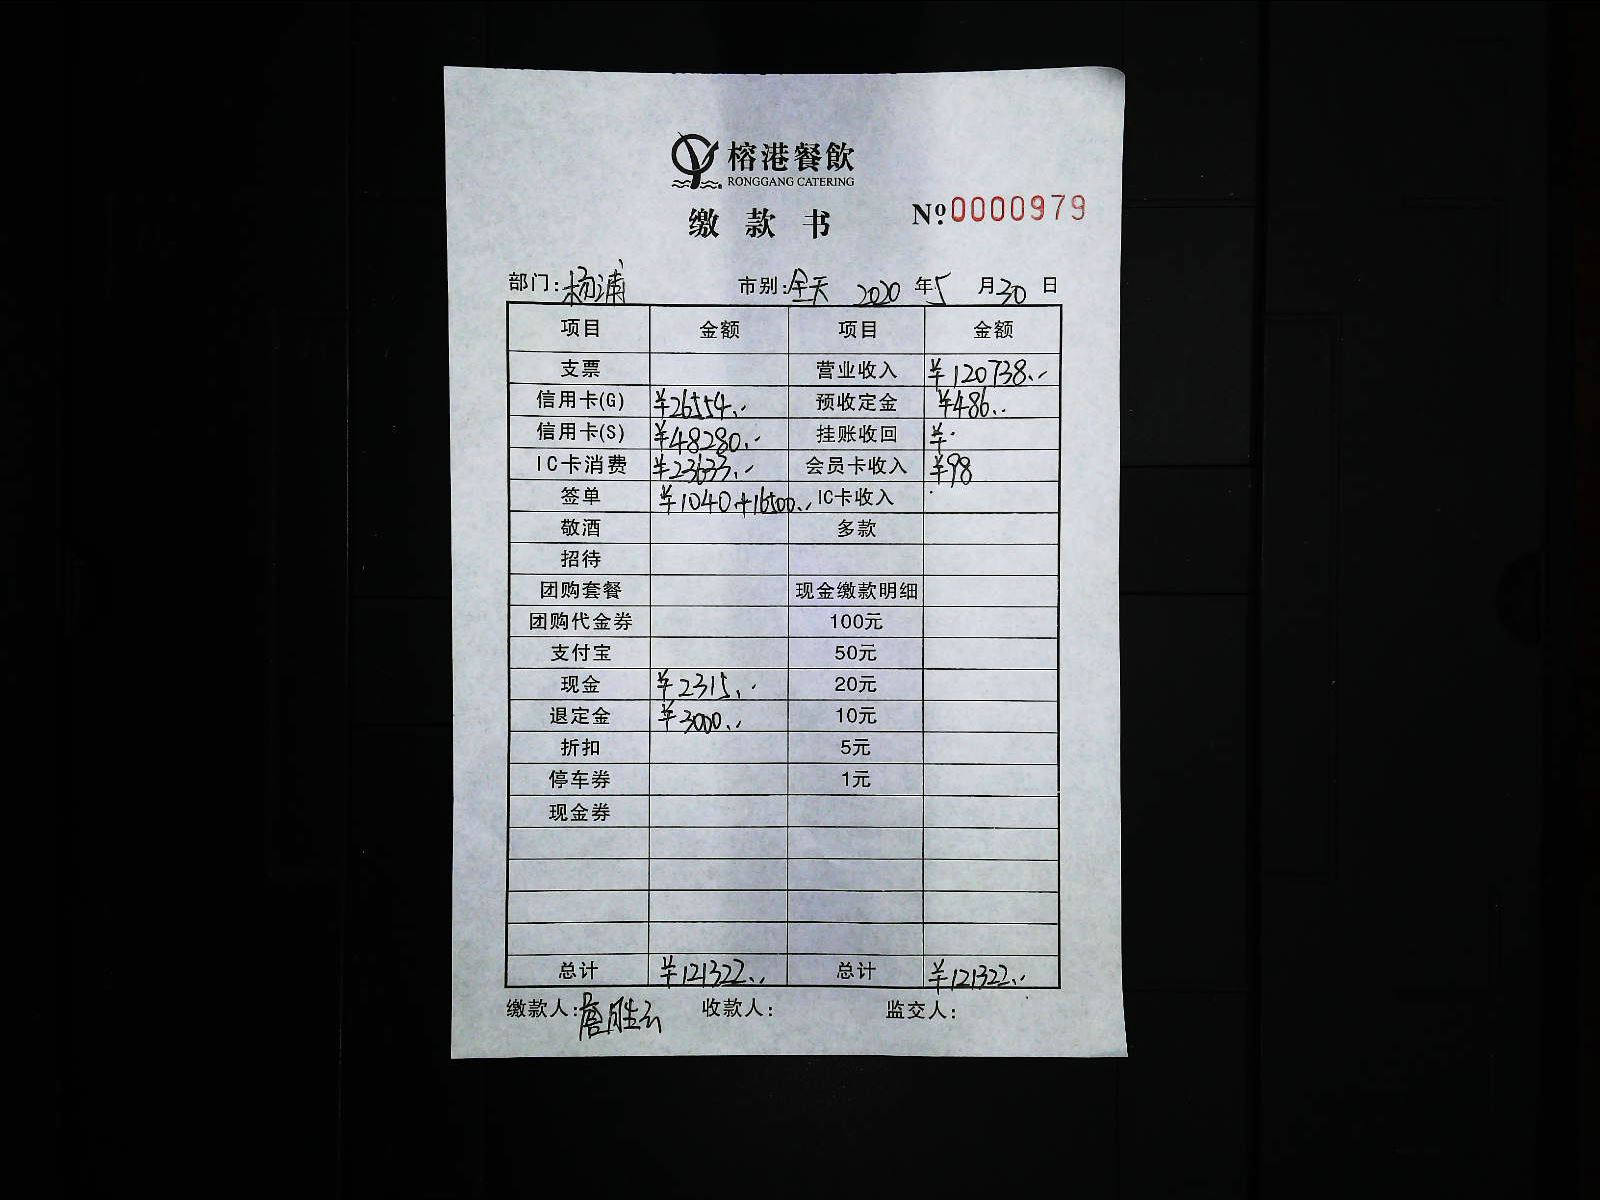 榕港餐飲
RONGGANG CATERING
缴款书
Nº 0000979
部门:杨浦 市别:全天 2020年5月30日
项目 金额 项目 金额
支票 营业收入 ¥120738.-
信用卡(G) ¥26554.- 预收定金 ¥486.-
信用卡(S) ¥48280.- 挂账收回 ¥.
IC卡消费 ¥23633.- 会员卡收入 ¥98
签单 ¥1040+16500.- IC卡收入
敬酒 多款
招待
团购套餐 现金缴款明细
团购代金券 100元
支付宝 50元
现金 ¥2315.- 20元
退定金 ¥3000.- 10元
折扣 5元
停车券 1元
现金券
总计 ¥121322.- 总计 ¥121322.-
缴款人:唐胜云 收款人: 监交人: